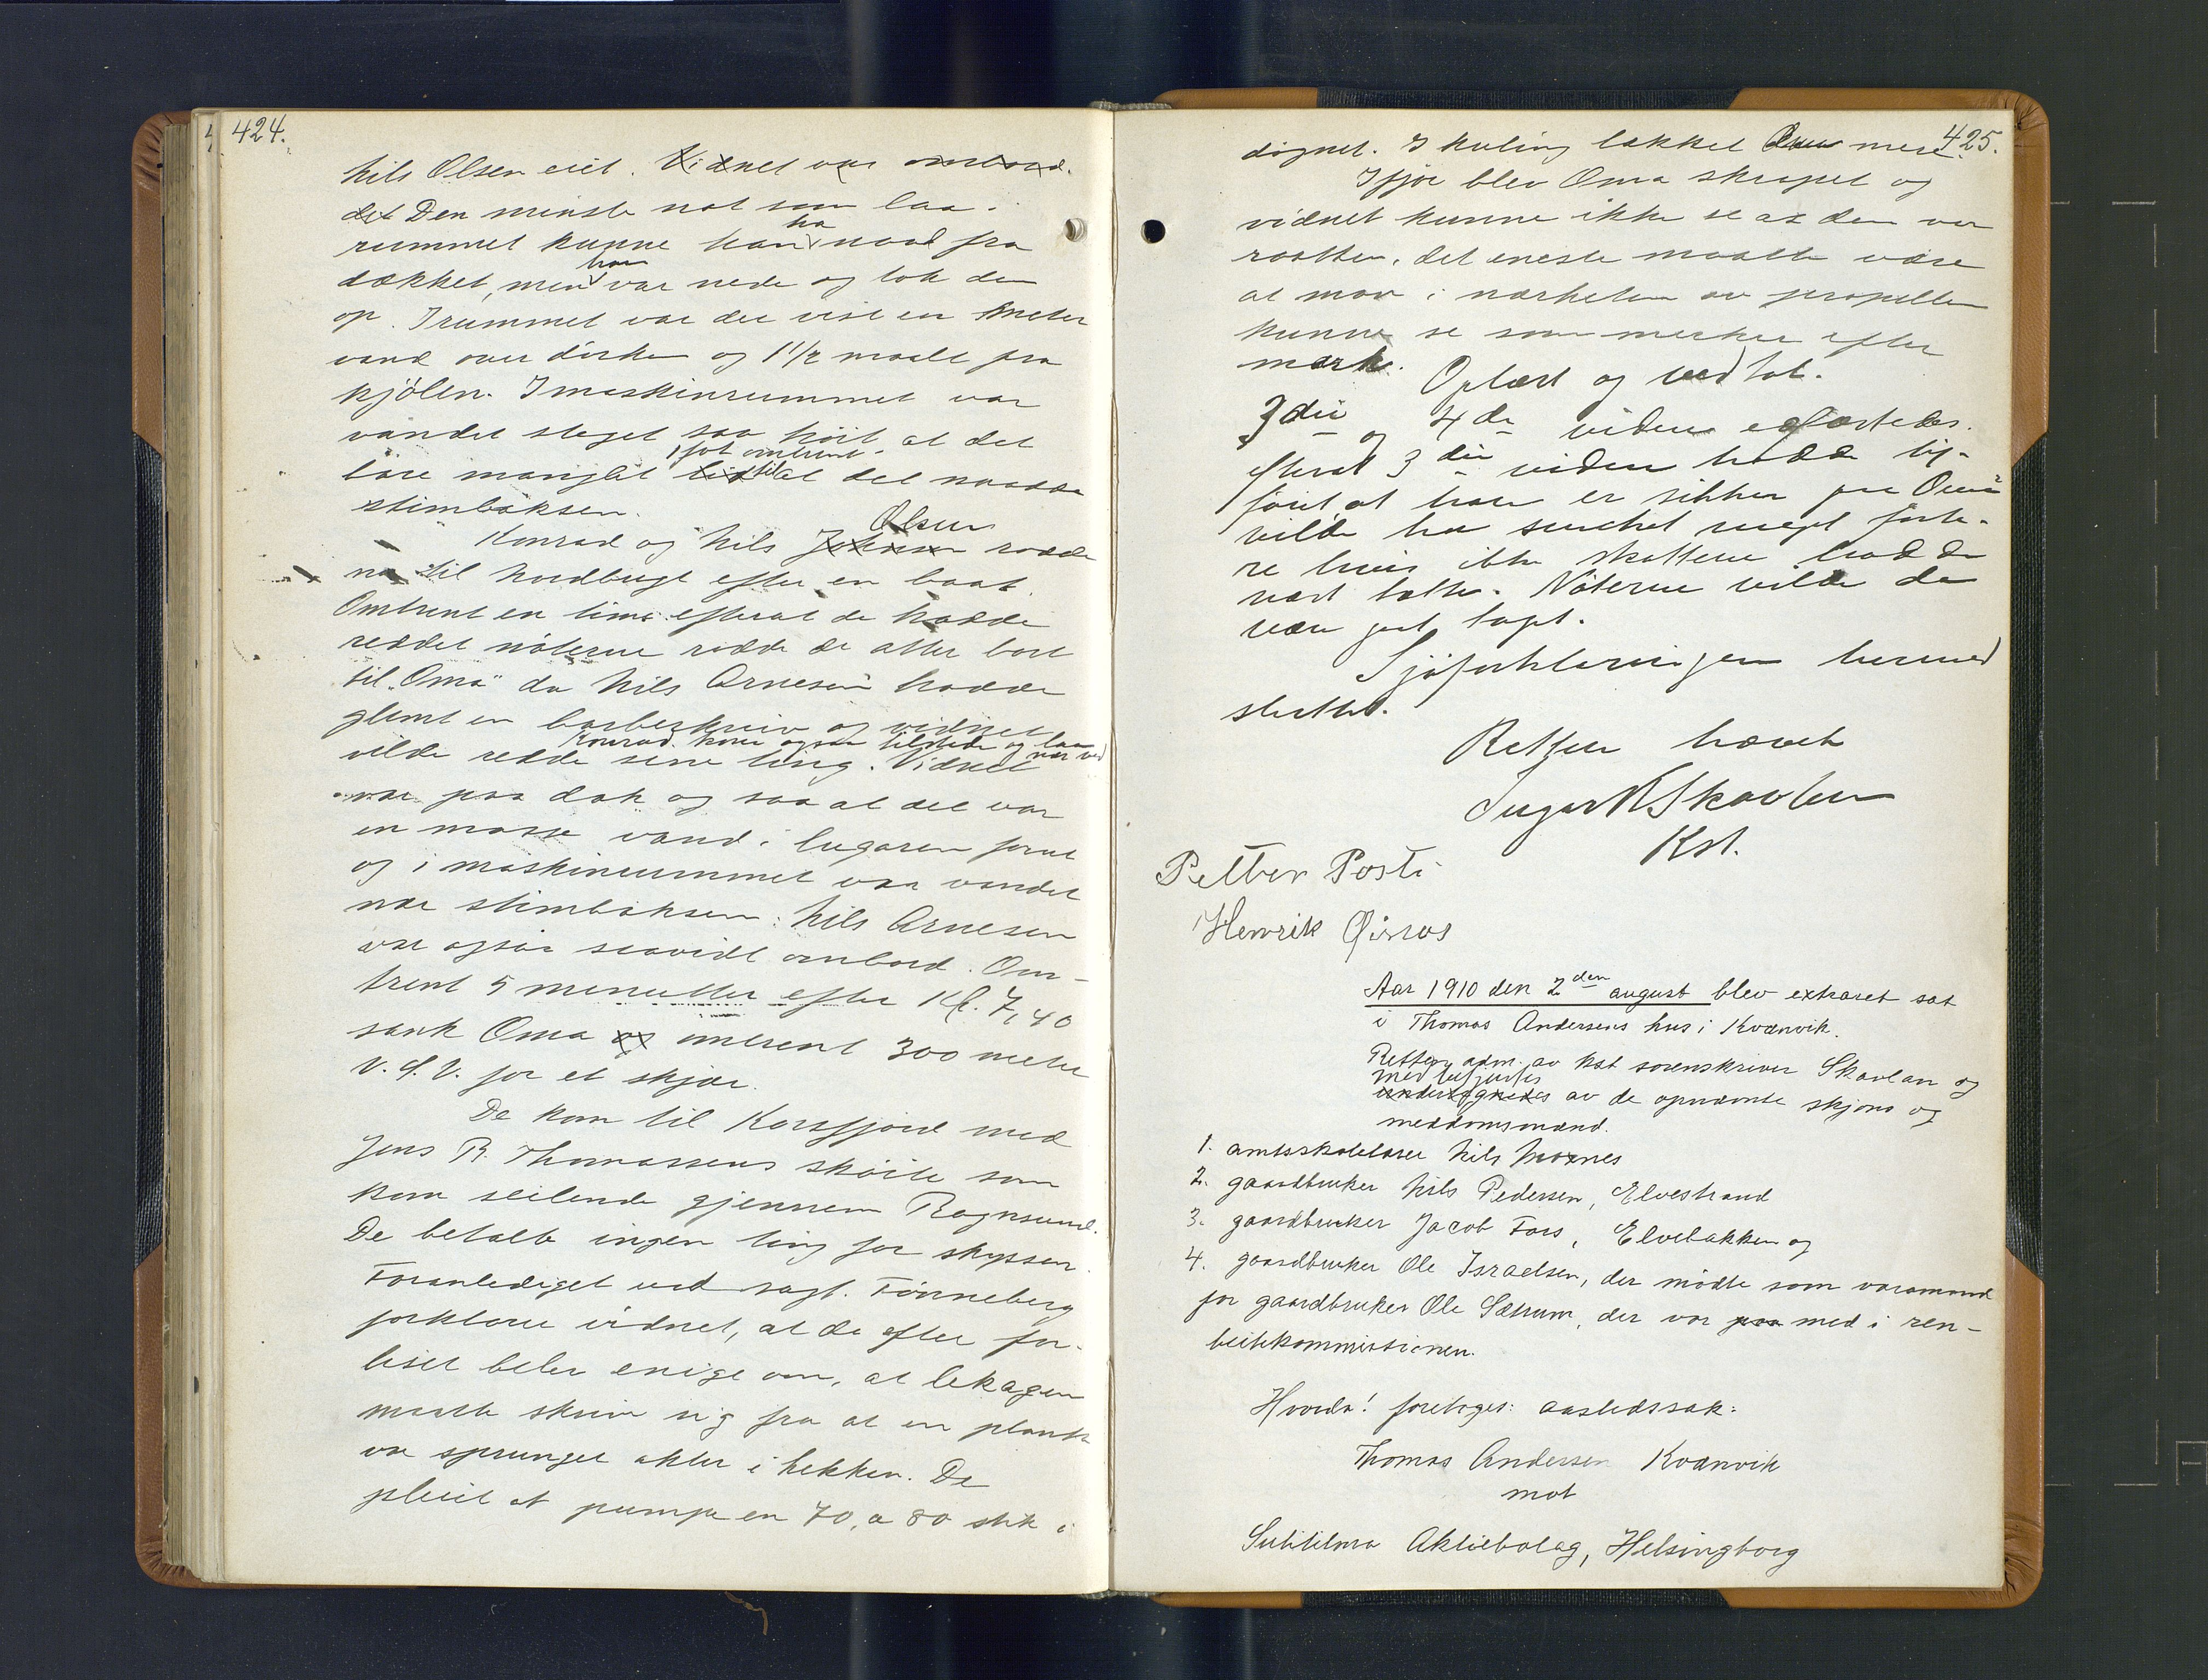 424.
Nils Olsen eiet. Vidnet var ombord.
det Den minste not som laa i
rummet kunne han ha naad fra
dækket, men han var nede og tok den
op. I rummet var der vist en meter
vand over dørken og 1 1/2 maalt fra
kjølen. I maskinrummet var
vandet steget saa høit at det
bare manglet lidt 1 fot omtrent til at det naadde
stimboksen.
Konrad og Nils Johnsen Olsen rodde
nu til Nordbugt efter en baat.
Omtrent en time efterat de hadde
reddet nøterne rodde de atter bort
til "Oma" da Nils Arnesen hadde
glemt en barberkniv og vidnet
vilde redde sine ting. Konrad kom ogsaa tilstede og laa Vidnet var ved
var paa dæk og saa at det var
en masse vand i lugaren forut
og i maskinrummet var vandet
nær stimboksen. Nils Arnesen
var ogsaa saavidt ombord. Om-
trent 5 minutter efter Kl. 7,40
sank Oma og omtrent 300 meter
V.S.V. for et skjær.
De kom til Korsfjord med
Jens R. Thomassens skøite som
kom seilende gjennem Rognsund.
De betalte ingen ting for skyssen.
Foranlediget ved sagf. Fønneberg
forklarer vidnet, at de efter for-
liset blev enige om, at lekagen
maatte skrive sig fra at en planke
var sprunget akter i hekken. De
pleiet at pumpe en 70, a 80 stk i
425.
døgnet. I kuling lækket Oma mere.
Ifjor blev Oma skrapet og
vidnet kunne ikke se at den var
raatten, det eneste maatte være
at man i nærheten av propellen
kunne se som merker efter
mark.
Oplæst og vedtat.
3die og 4de vidne
efterat 3die vidne hadde til-
føiet at han er sikker paa Oma
vilde ha sunket meget forte-
re hvis ikke skottene hadde
vært tætte. Nøterne vilde da
være gaat tapt.
Sjøforklaringen hermed
sluttet.
Retten hævet
Skavlan
Kst.
Petter Posti
Henrik
Aar 1910 den 2den august blev extraret sat
i Thomas Andersens hus i Kvænvik.
Retten adm. av kst sorenskriver Skavlan og
medbetjentes
undertegnedes av de opnævnte skjøns og
meddomsmænd.
1. amtsskolelærer Nils Moxnes
2. gaardbruker Nils Pedersen, Elvestrand
3. gaardbruker Jacob Fors, Elvebakken og
4. gaardbruker Ole Israelsen, der mødte som varamand
for gaardbruker Ole Sætrum, der var paa med i ren-
beitekommissionen.
Hvorda! foretages: aastedssak:
Thomas Andersen Kvænvik
mot
Sulitelma Aktiebolag, Helsingborg